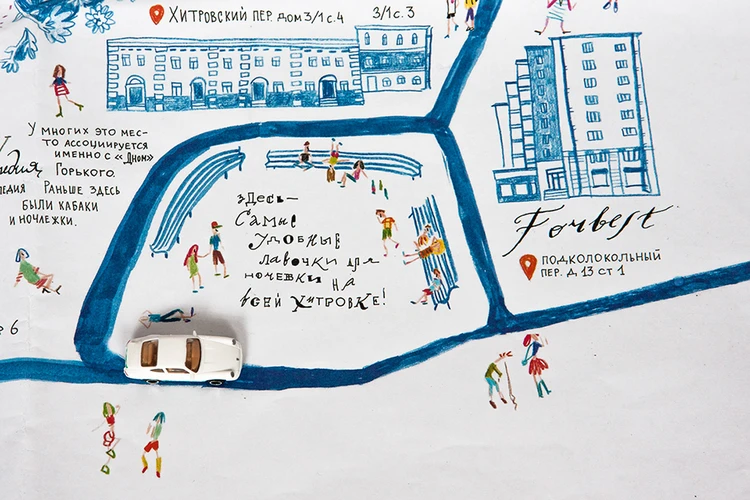 Хитровский пер. дом 3/1 с. 4
3/1 с. 3
У многих это мес-
то ассоциируется
именно с «Дном»
Горького.
Раньше здесь
были кабаки
и ночлежки.
здесь—
самые
удобные
лавочки для
ночевки на
всей Хитровке!
Forbest
Подколокольный
пер. д 13 ст 1
6